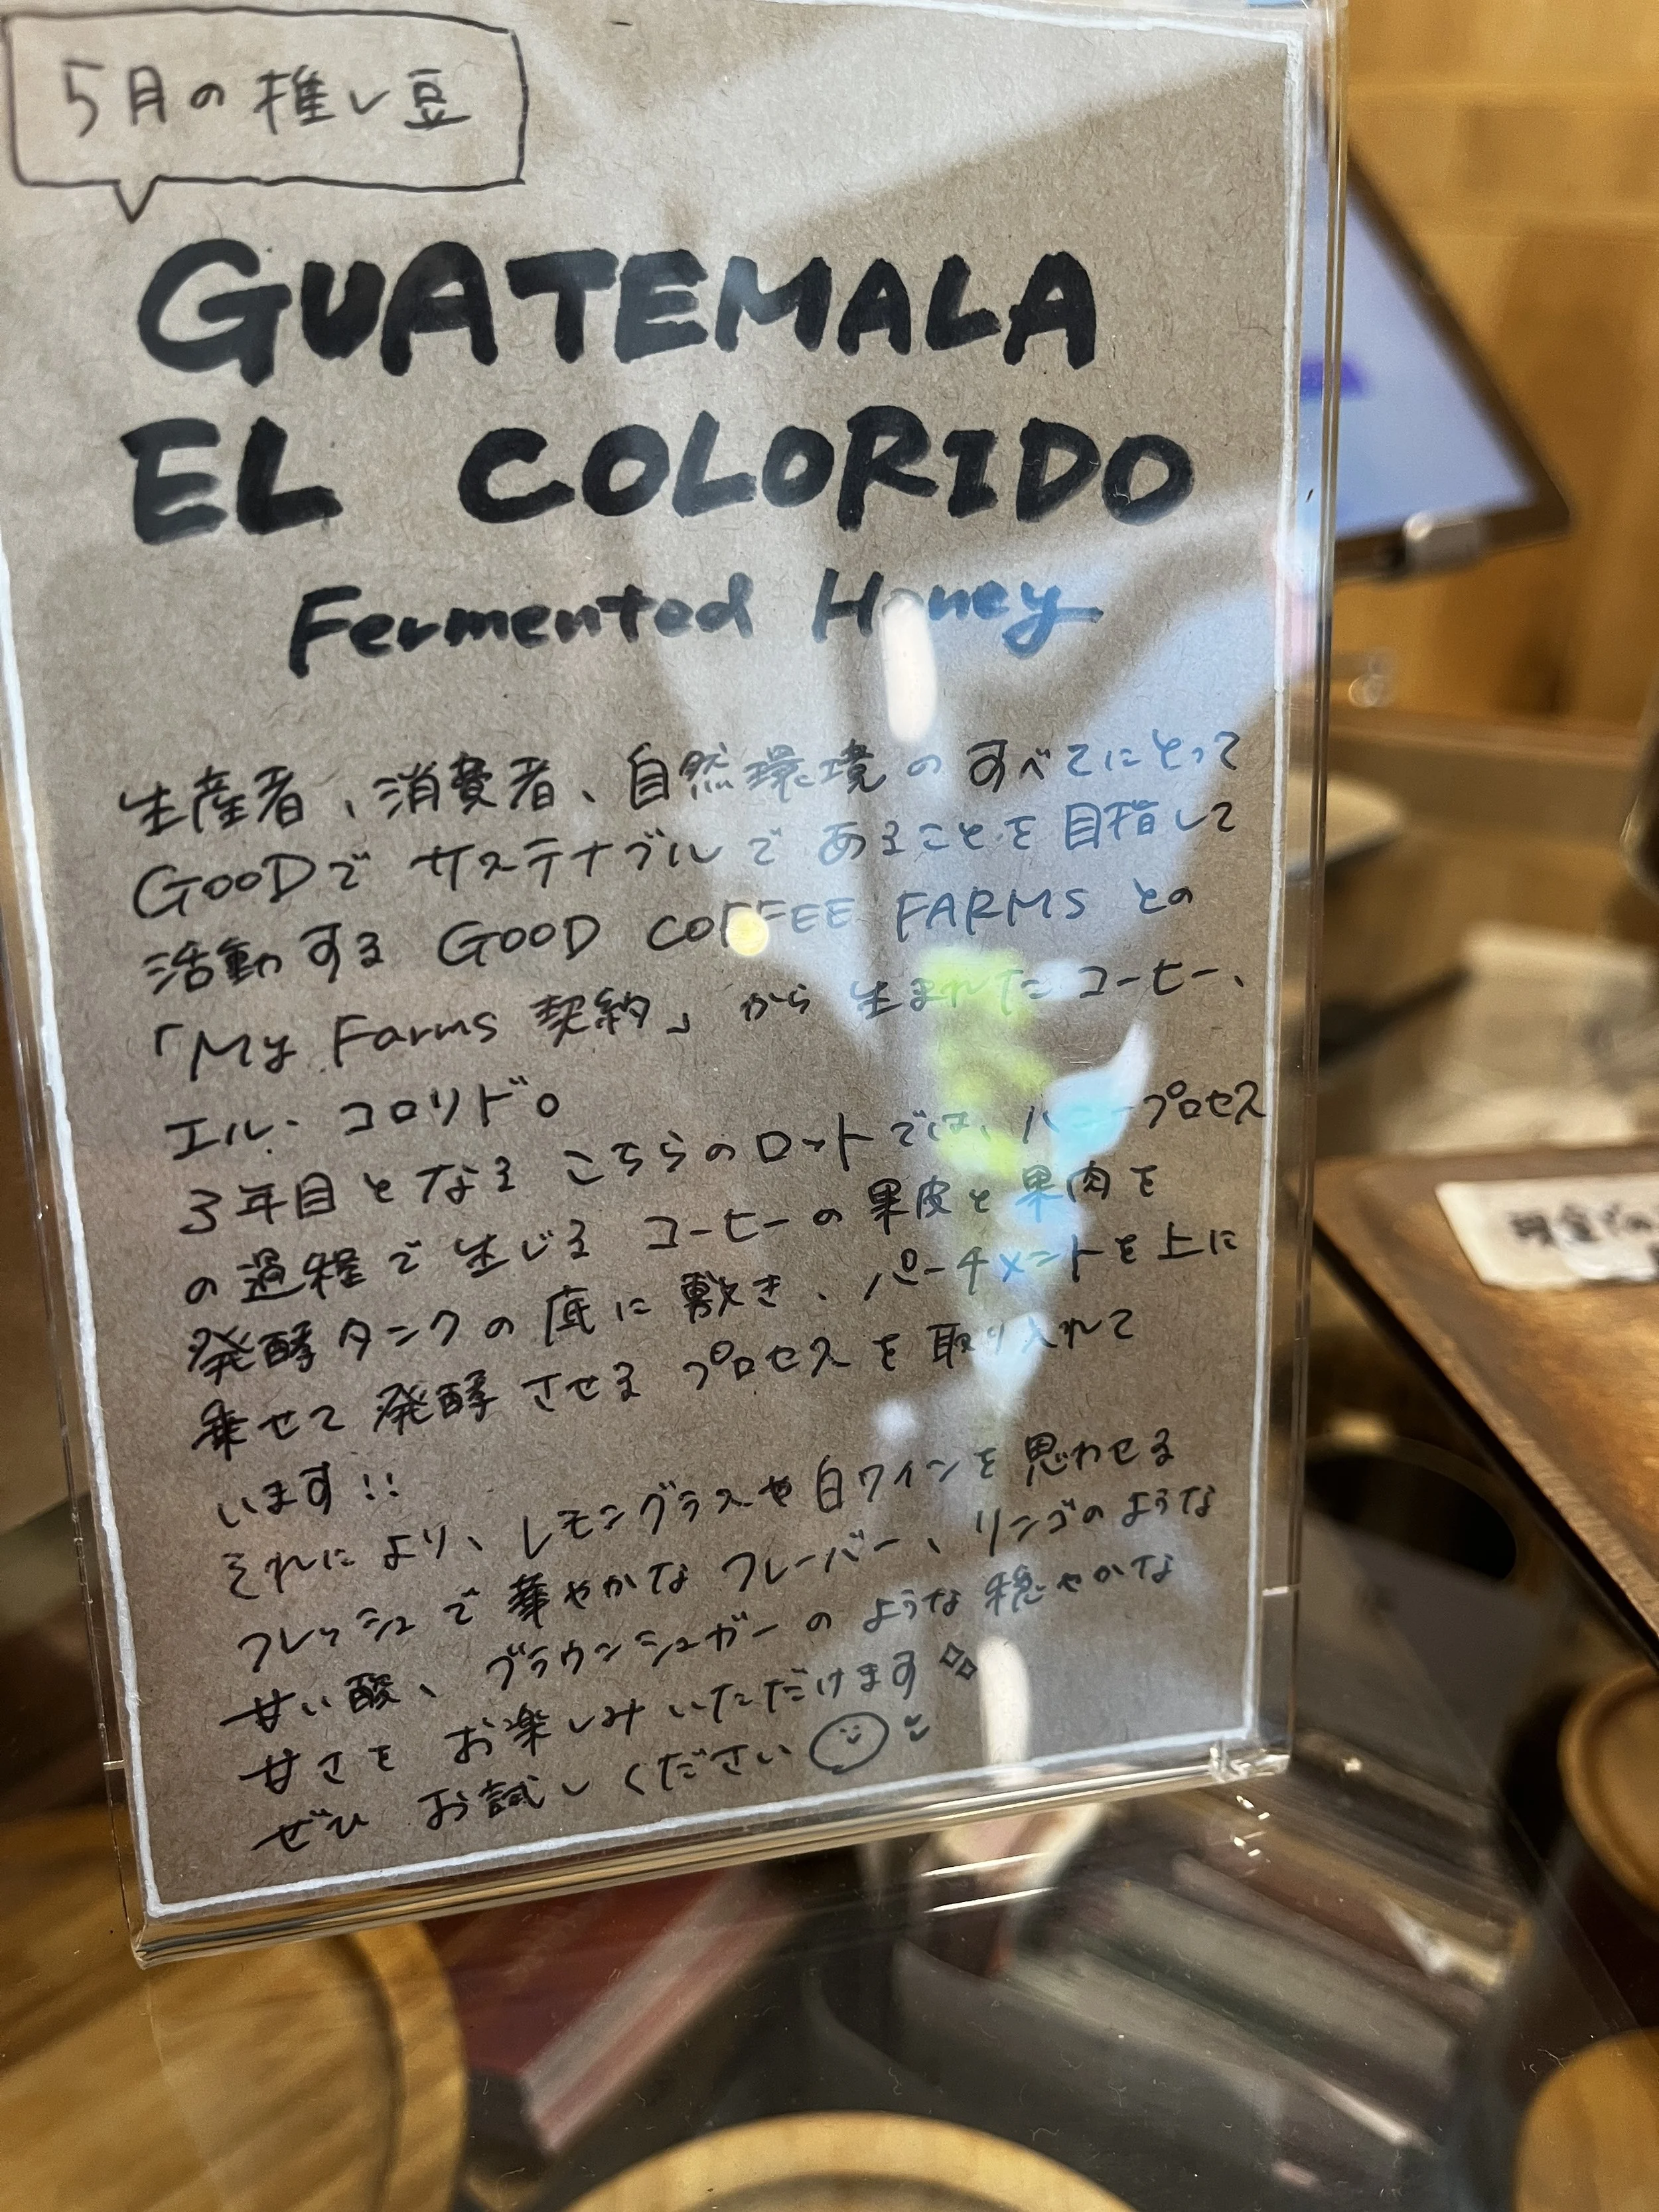 5月の推し豆
GUATEMALA
EL COLORIDO
Fermented Honey
生産者、消費者、自然環境のすべてにとって
GOODで サステナブルで あることを目指して
活動する GOOD COFFEE FARMS との
「My Farms 契約」から 生まれたコーヒー、
エル・コロリド。
3年目となる こちらのロットでは、ハニープロセス
の過程で生じる コーヒーの果皮と果肉を
発酵タンクの底に敷き、パーチメントを上に
乗せて発酵させる プロセスを取り入れて
います!!
それにより、レモングラスや白ワインを思わせる
フレッシュで華やかな フレーバー、リンゴのような
甘い酸、ブラウンシュガーのような穏やかな
甘さを お楽しみいただけます
ぜひ お試しください